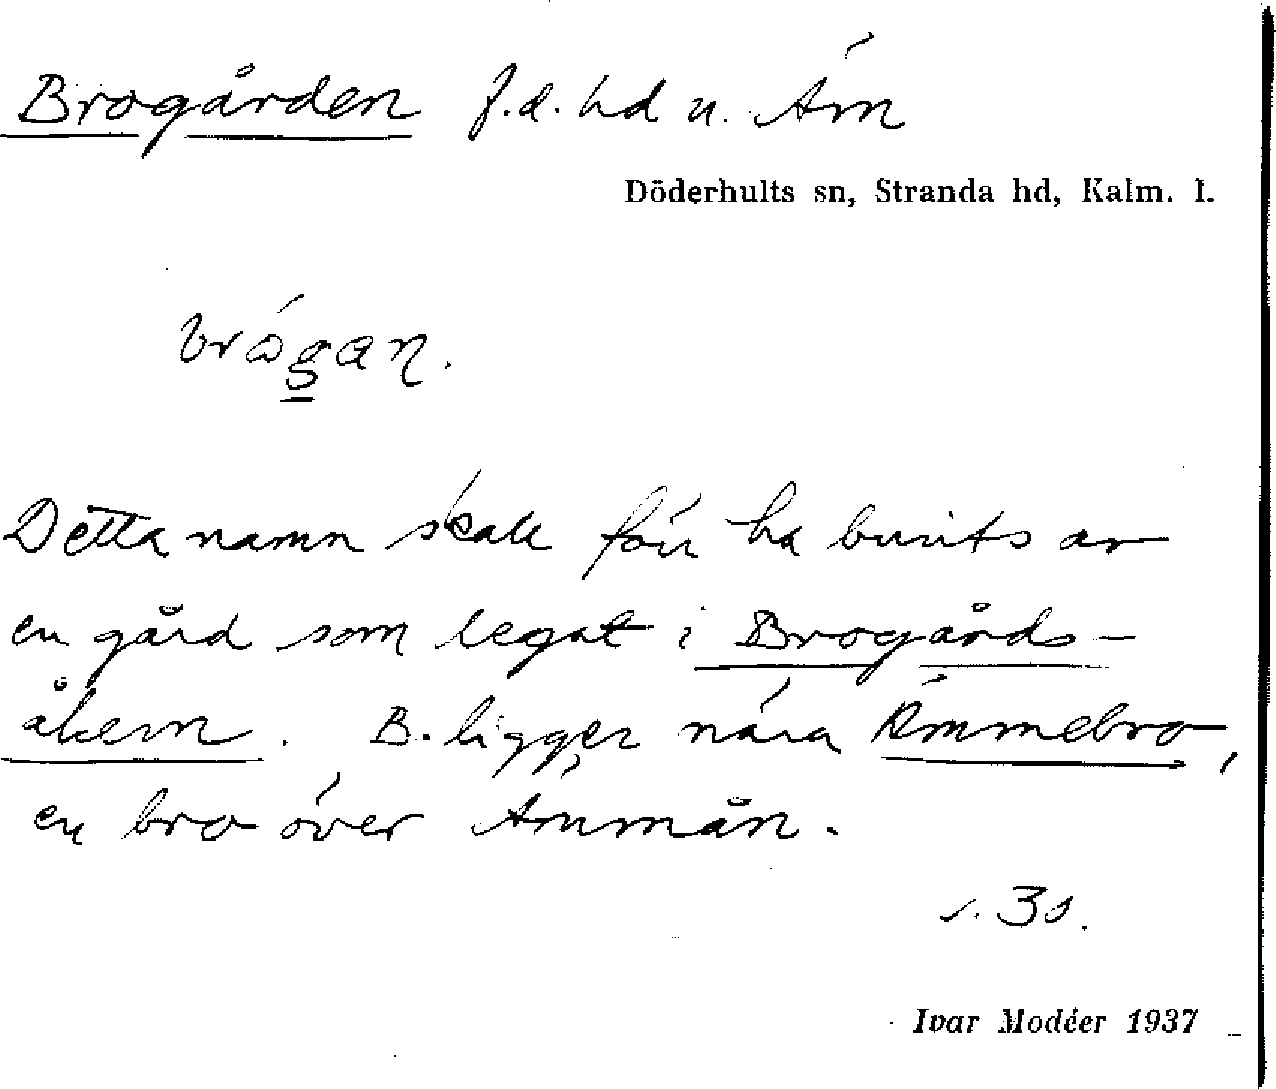 Brogården f.d. hd u. Äm
Döderhults sn, Stranda hd, Kalm. l.
Detta namn skall förr ha burits av
en gård som legat i Brogårds-
åkern. B. ligger nära Ämmebro,
en bro över Ämmån.
s. 30.
Ivar Modéer 1937